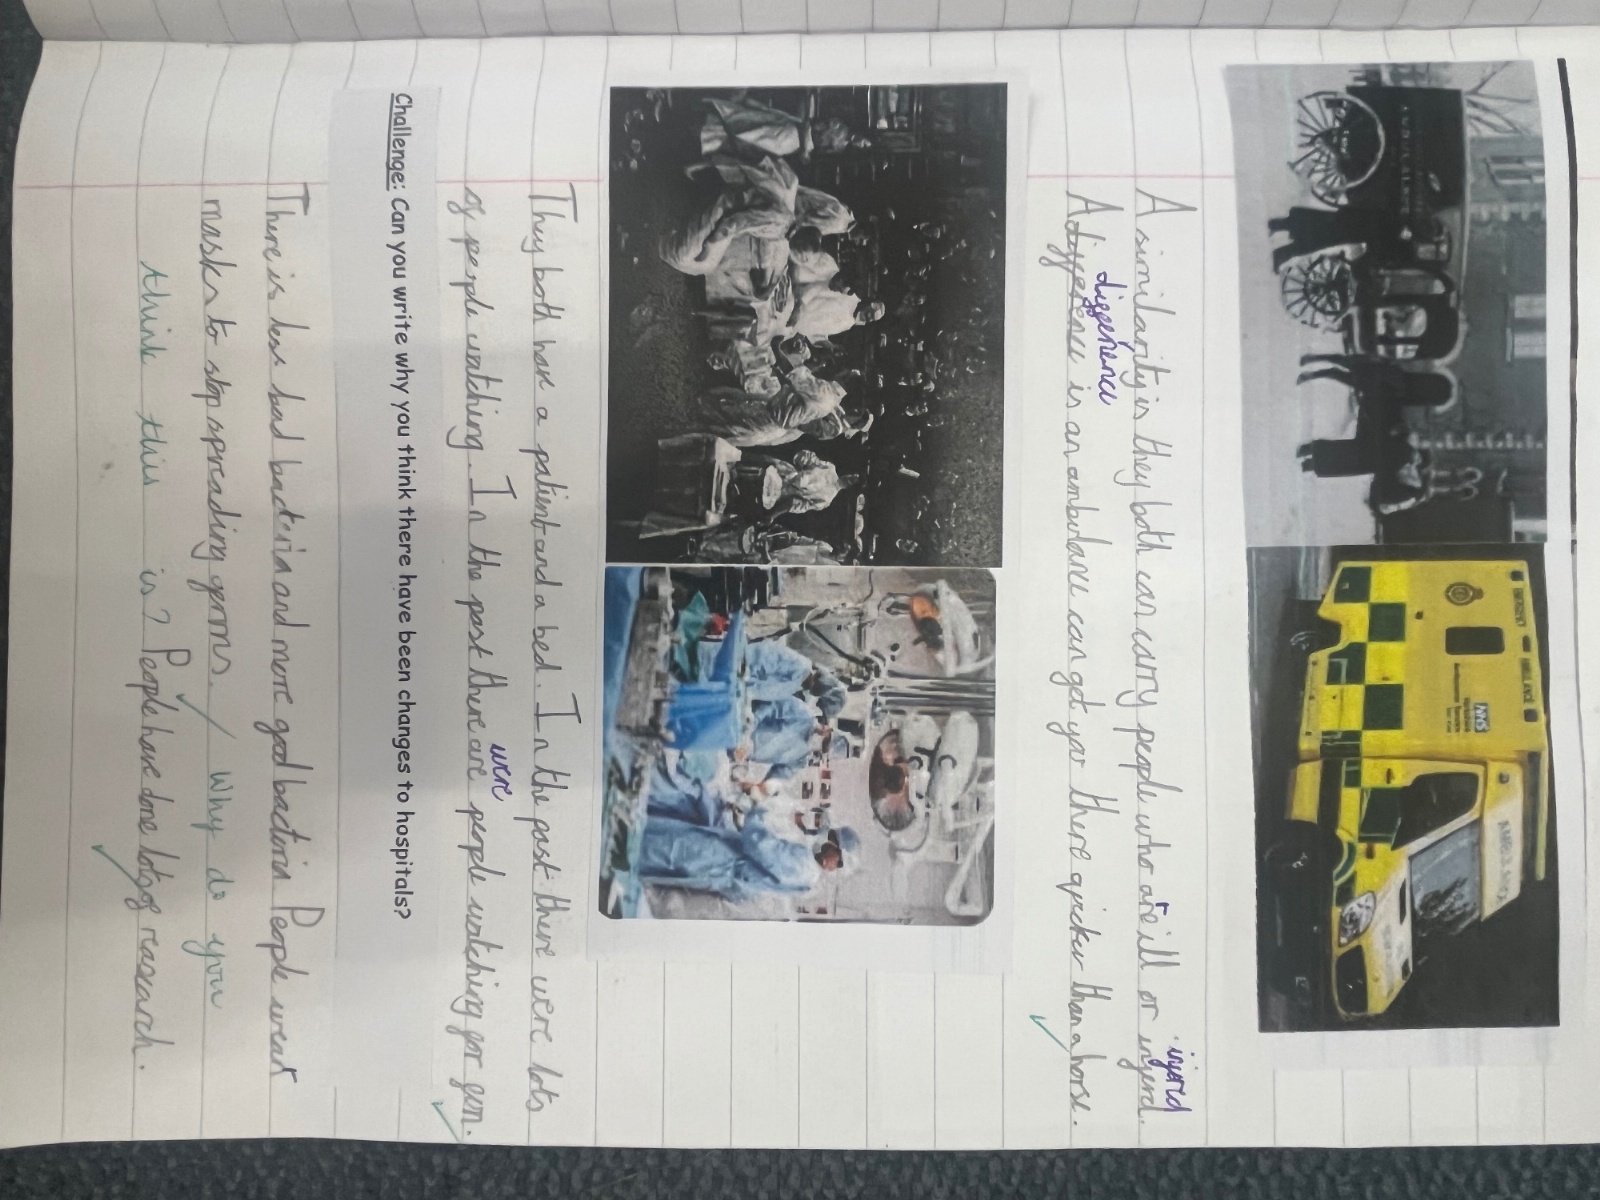 AMBULANCE
EMERGENCY AMBULANCE
NHS
A similarity is they both can carry people who are ill or injerd.
injured
difference
A difference is an ambulance can get you there quicker than a horse.
They both have a patient and a bed. In the past there were lots
of people watching. In the past there are people watching for fun.
were
Challenge: Can you write why you think there have been changes to hospitals?
There is less bad bacteria and more good bacteria People wear
masks to stop spreading germs. Why do you
think this is? People have done lots of reasearch.